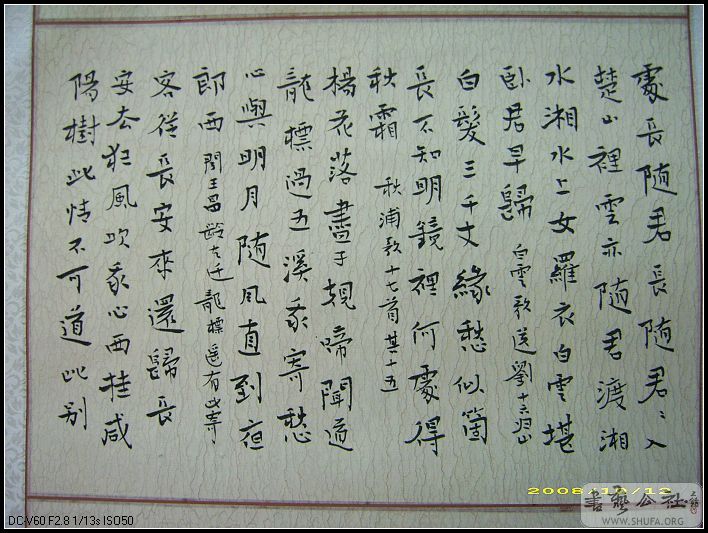 處長随君長随君〻入
楚山裡雲亦随君渡湘
水湘水上女羅衣白雲堪
卧君早歸 白雲歌送劉十六歸山
白髮三千丈緣愁似箇
長不知明鏡裡何處得
秋霜 秋浦歌十七首其十五
楊花落盡子規啼聞道
龍標過五溪我寄愁
心與明月随風直到夜
郎西 聞王昌齡左迁龍標遥有此寄
客從長安來還歸長
安去狂風吹我心西挂咸
陽樹此情不可道此别
2008/1
書藝公社
WWW.SHUFA.ORG
DC-V60 F2.8 1/13s ISO50